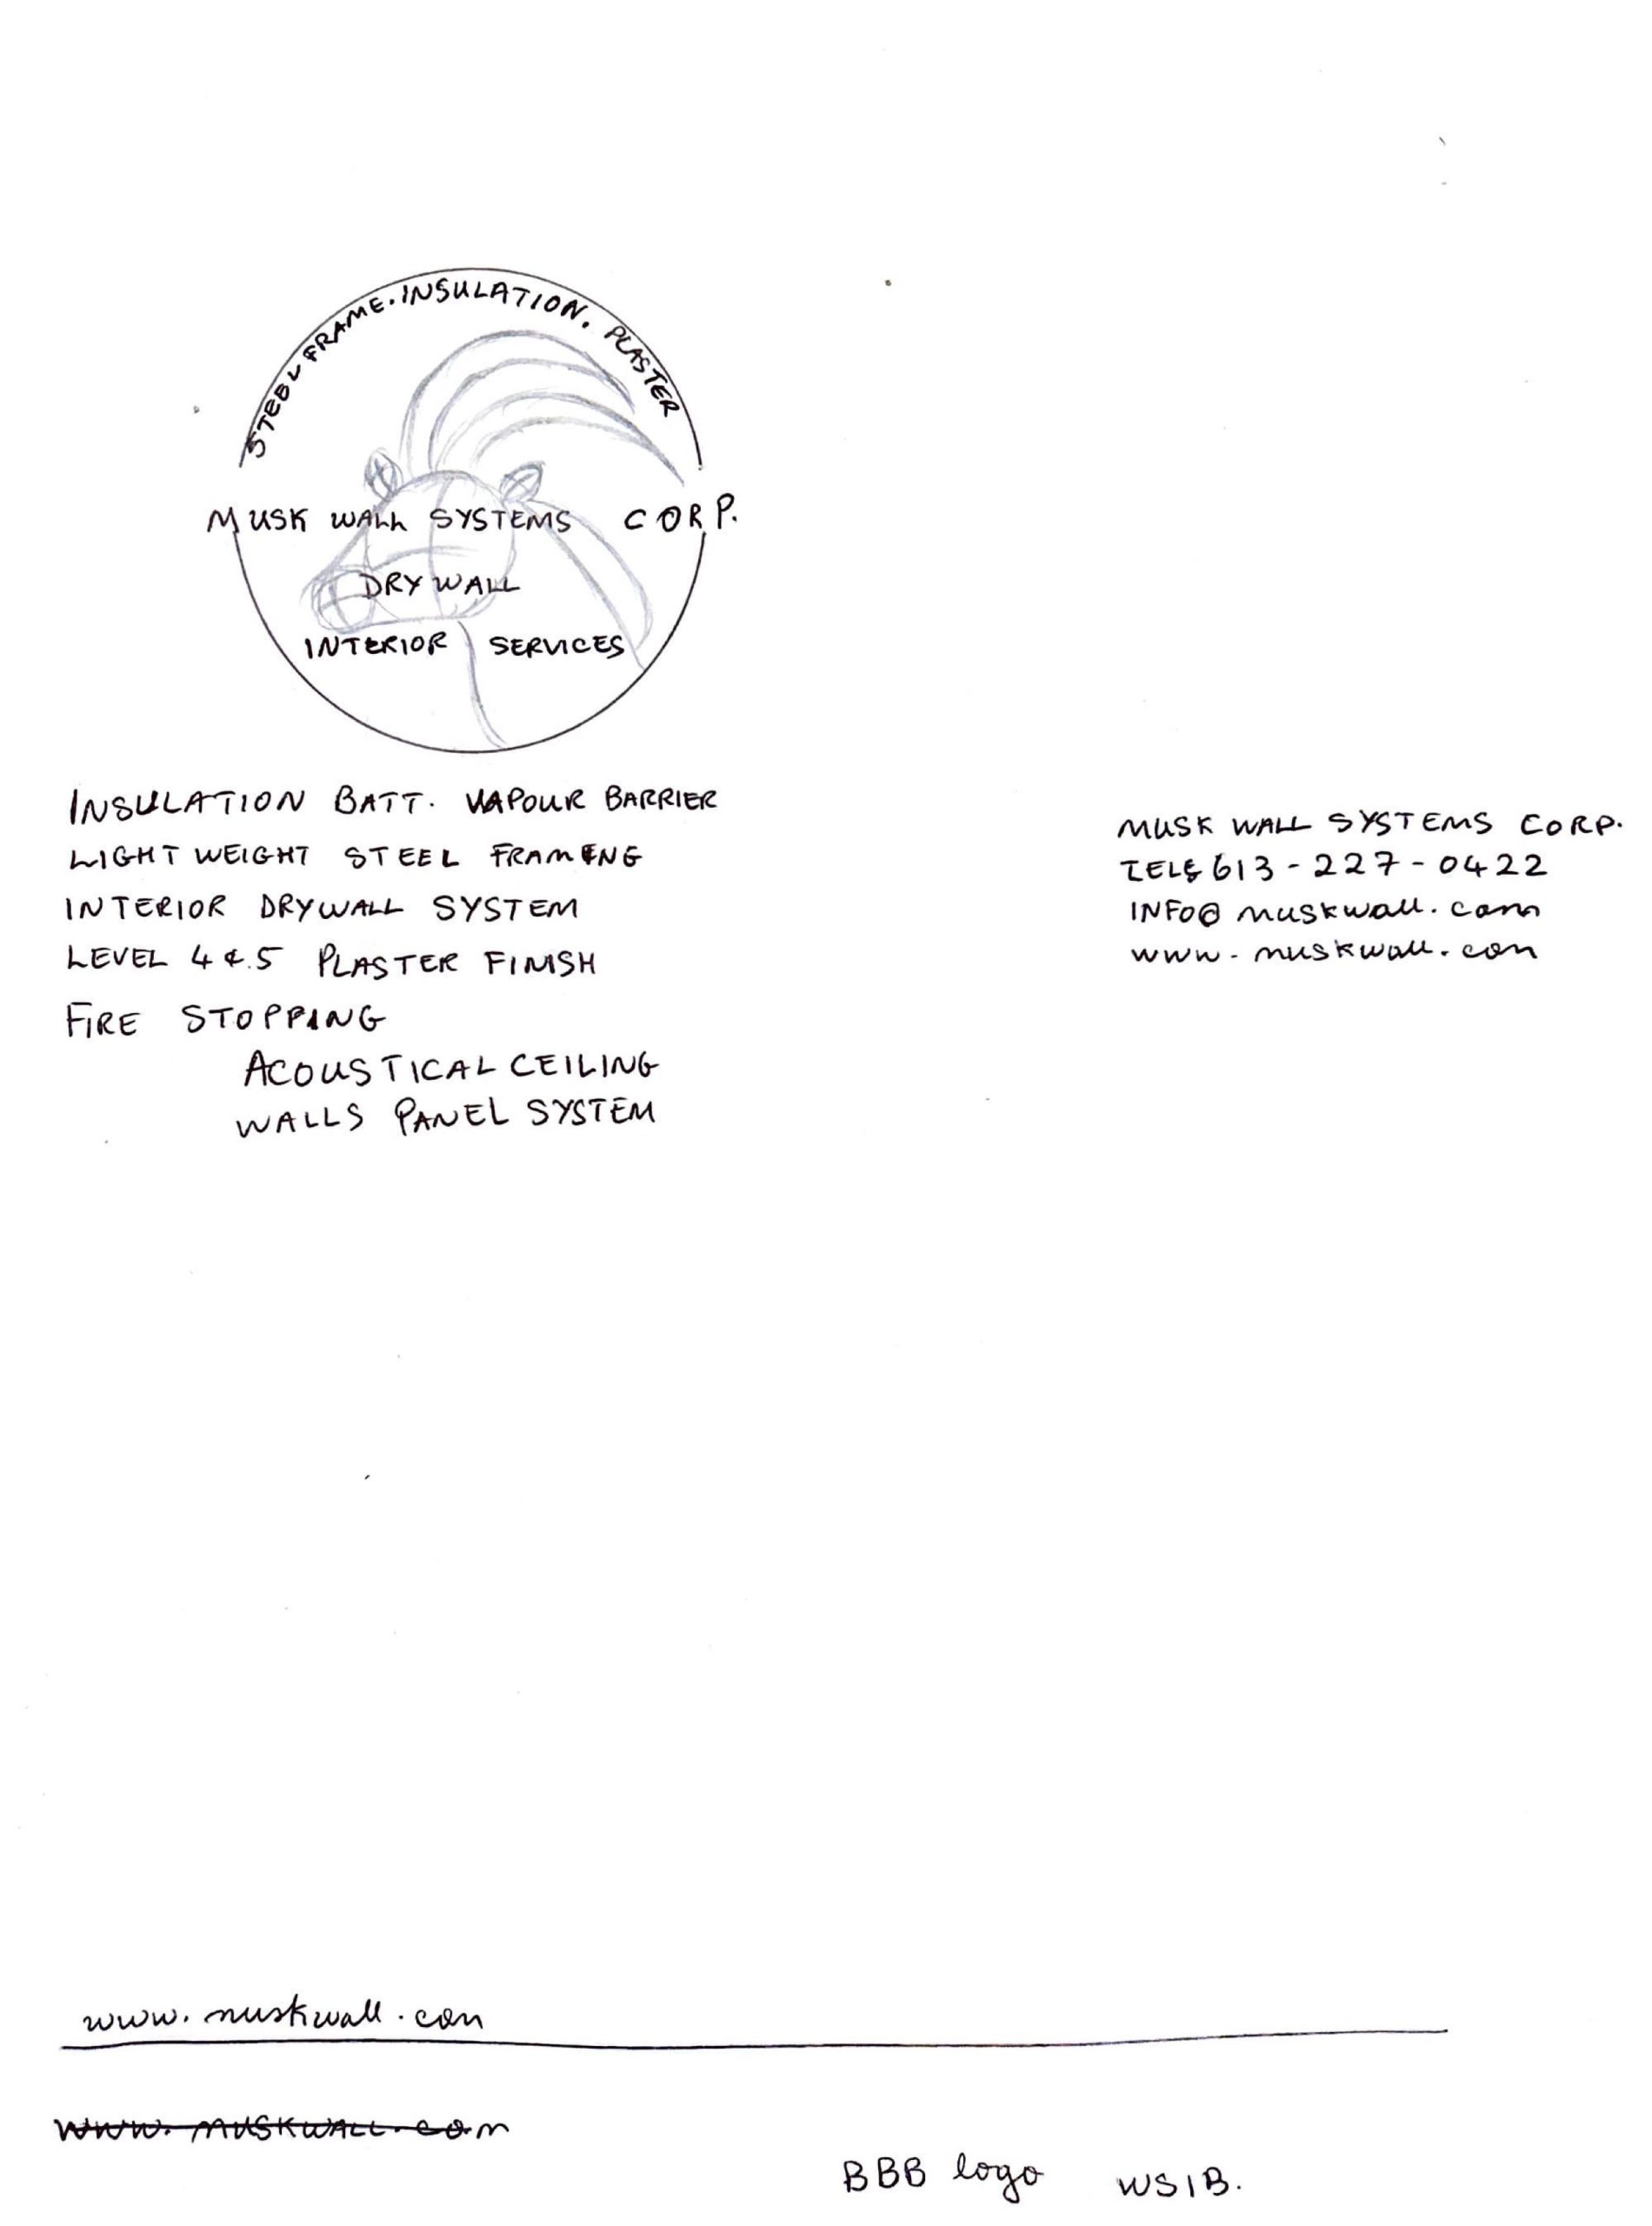 STEEL FRAME. INSULATION. PLASTER
MUSK WALL SYSTEMS CORP.
DRYWALL
INTERIOR SERVICES
INSULATION BATT. VAPOUR BARRIER
LIGHTWEIGHT STEEL FRAMENG
INTERIOR DRYWALL SYSTEM
LEVEL 4 &.5 PLASTER FINISH
FIRE STOPPING
ACOUSTICAL CEILING
WALLS PANEL SYSTEM
MUSK WALL SYSTEMS CORP.
TEL: 613-227-0422
INFO@muskwall.com
www.muskwall.com
www.muskwall.com
www.MUSKWALL.com
BBB logo WSIB.